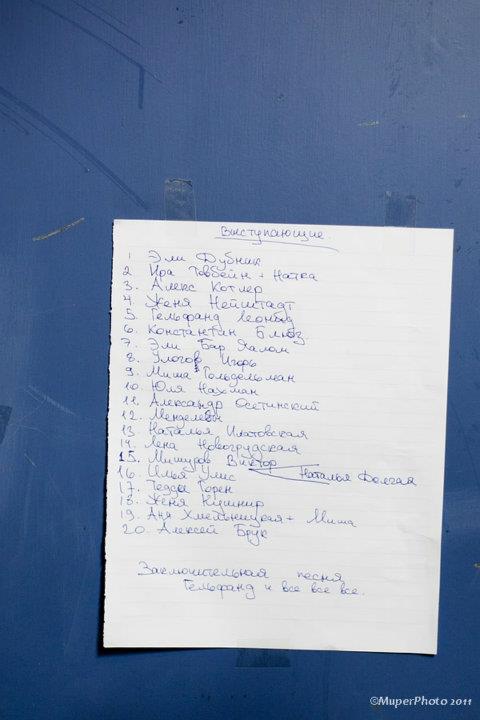 Выступающие.
1 Эли Дубник
2 Ира Товбейн + Натка
3. Алекс Котлер
4. Женя Нейштадт
5. Гельфанд Леонид
6. Константин Блюз.
7. Эли Бар Яалом
8. Улогов Игорь
9. Миша Гольдельман
10. Юля Нахман
11. Александр Осетинский
12. Менделевы
13 Наталья Платовская
14. Лена Новогрудская
15. Мишуров Виктор
Наталья Долгая
16. Илья Улис
17. Тедди Горен
18. Женя Кушнир
19. Аня Хмельницкая + Миша
20. Алексей Брук
Заключительная песня
Гельфанд и все все все.
©MuperPhoto 2011